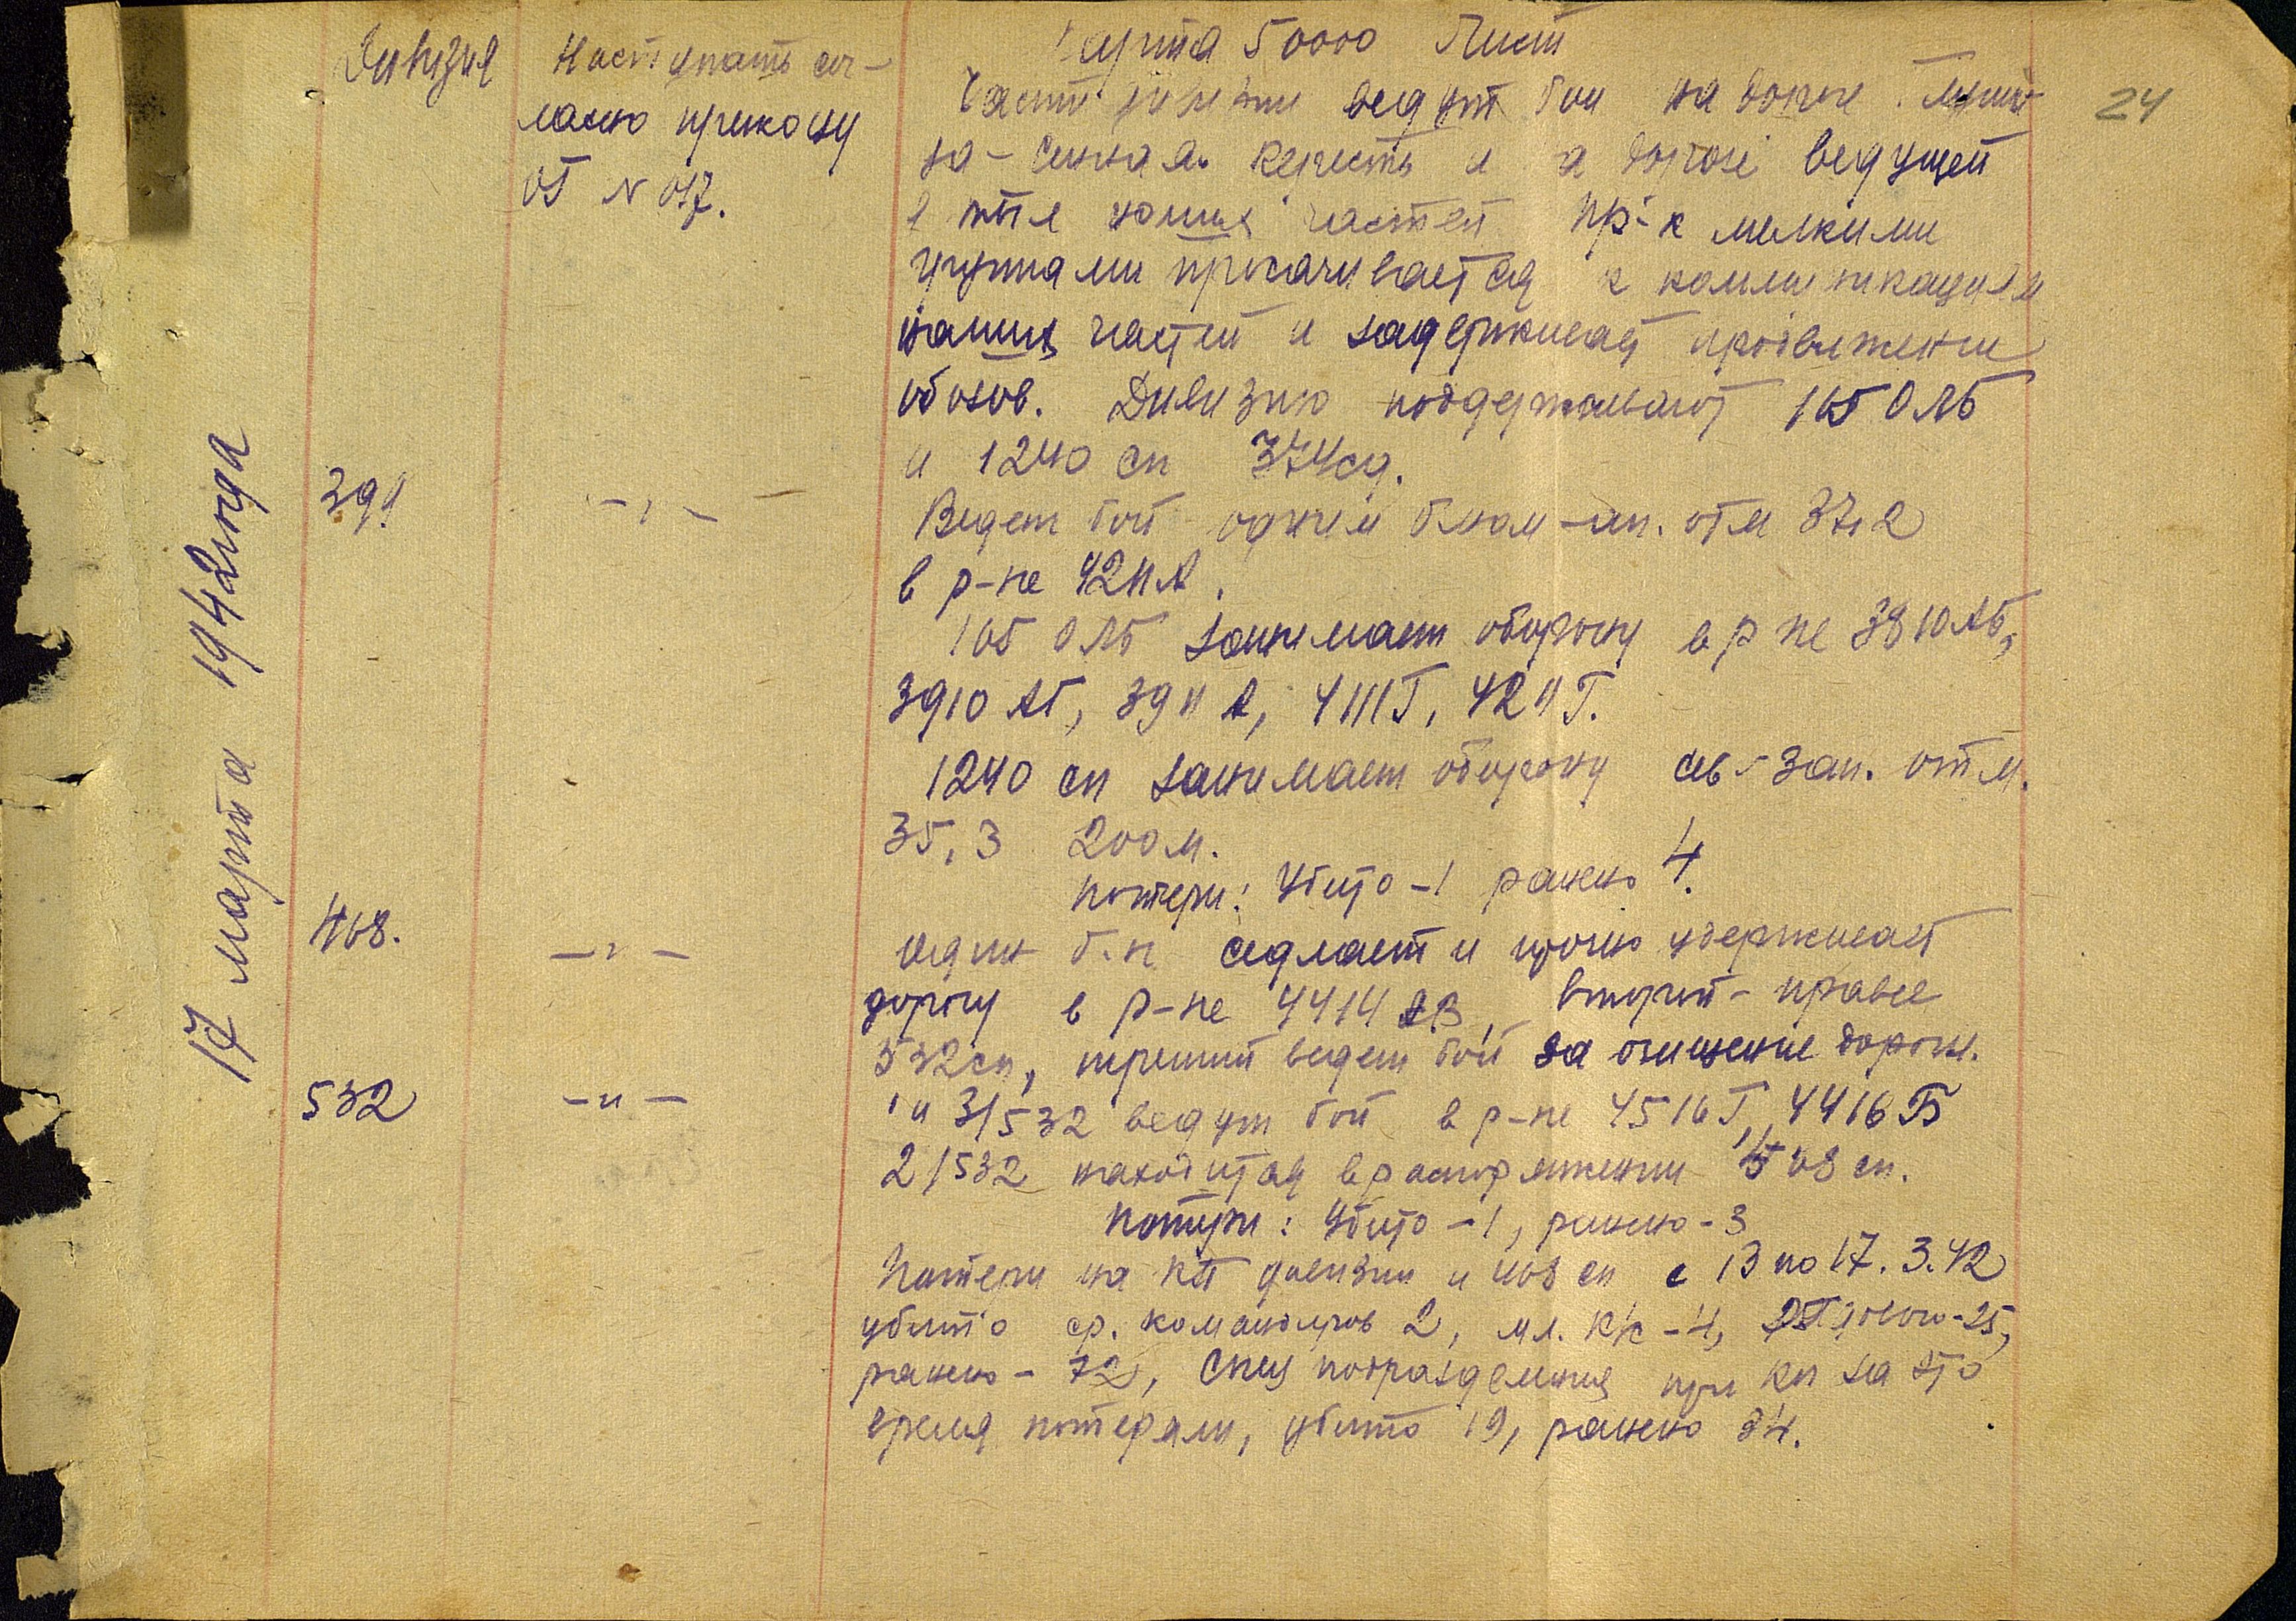 24
17 марта 1942 года
Дивизия
Наступать сог-
ласно приказу
ОГ № 017.
Карта 50000 Лист
Части дивизии ведут бои на дороге
на - Сенная Кересть и а дороге ведущей
в тыл наших частей пр-к мелкими
группами просачивается к коммуникациям
наших частей и задерживает продвижение
обозов. Дивизию поддерживают 165 ОЛБ
и 1240 сп 374сд.
391
- " -
Ведет бой одним б-ном отм 37,2
в р-не 4211А.
165 ОЛБ занимает оборону в р не 3810АБ,
3910 АБ, 3911 А, 4111Г, 4211Г.
1240 сп занимает оборону сев-зап. отм.
35,3 200 м.
Потери: Убито - 1 ранено 4.
468.
- " -
один б-н седлает и прочно удерживает
дорогу в р-не 4414 АВ, второй - правее
532сп, третий ведет бой за очищение дороги.
532
- " -
1 и 3/532 ведут бой в р-не 4516Г, 4416Б
2/532 находится в распоряжении 468 сп.
Потери: Убито - 1, ранено - 3
Потери на КП дивизии и 468 сп с 13 по 17.3.42
убито ср. командиров 2, мл. к/с - 4, рядового - 25,
ранено - 72, Спец подразделения при КП за это
время потеряли, убито 19, ранено 34.